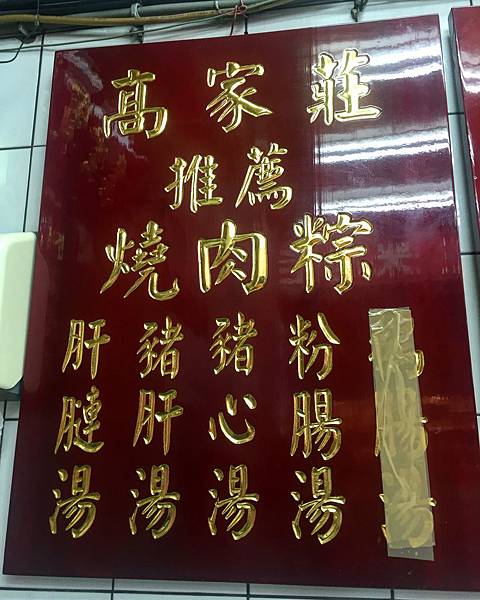 高家莊
推薦
燒肉粽
粉腸湯
豬心湯
豬肝湯
肝腱湯